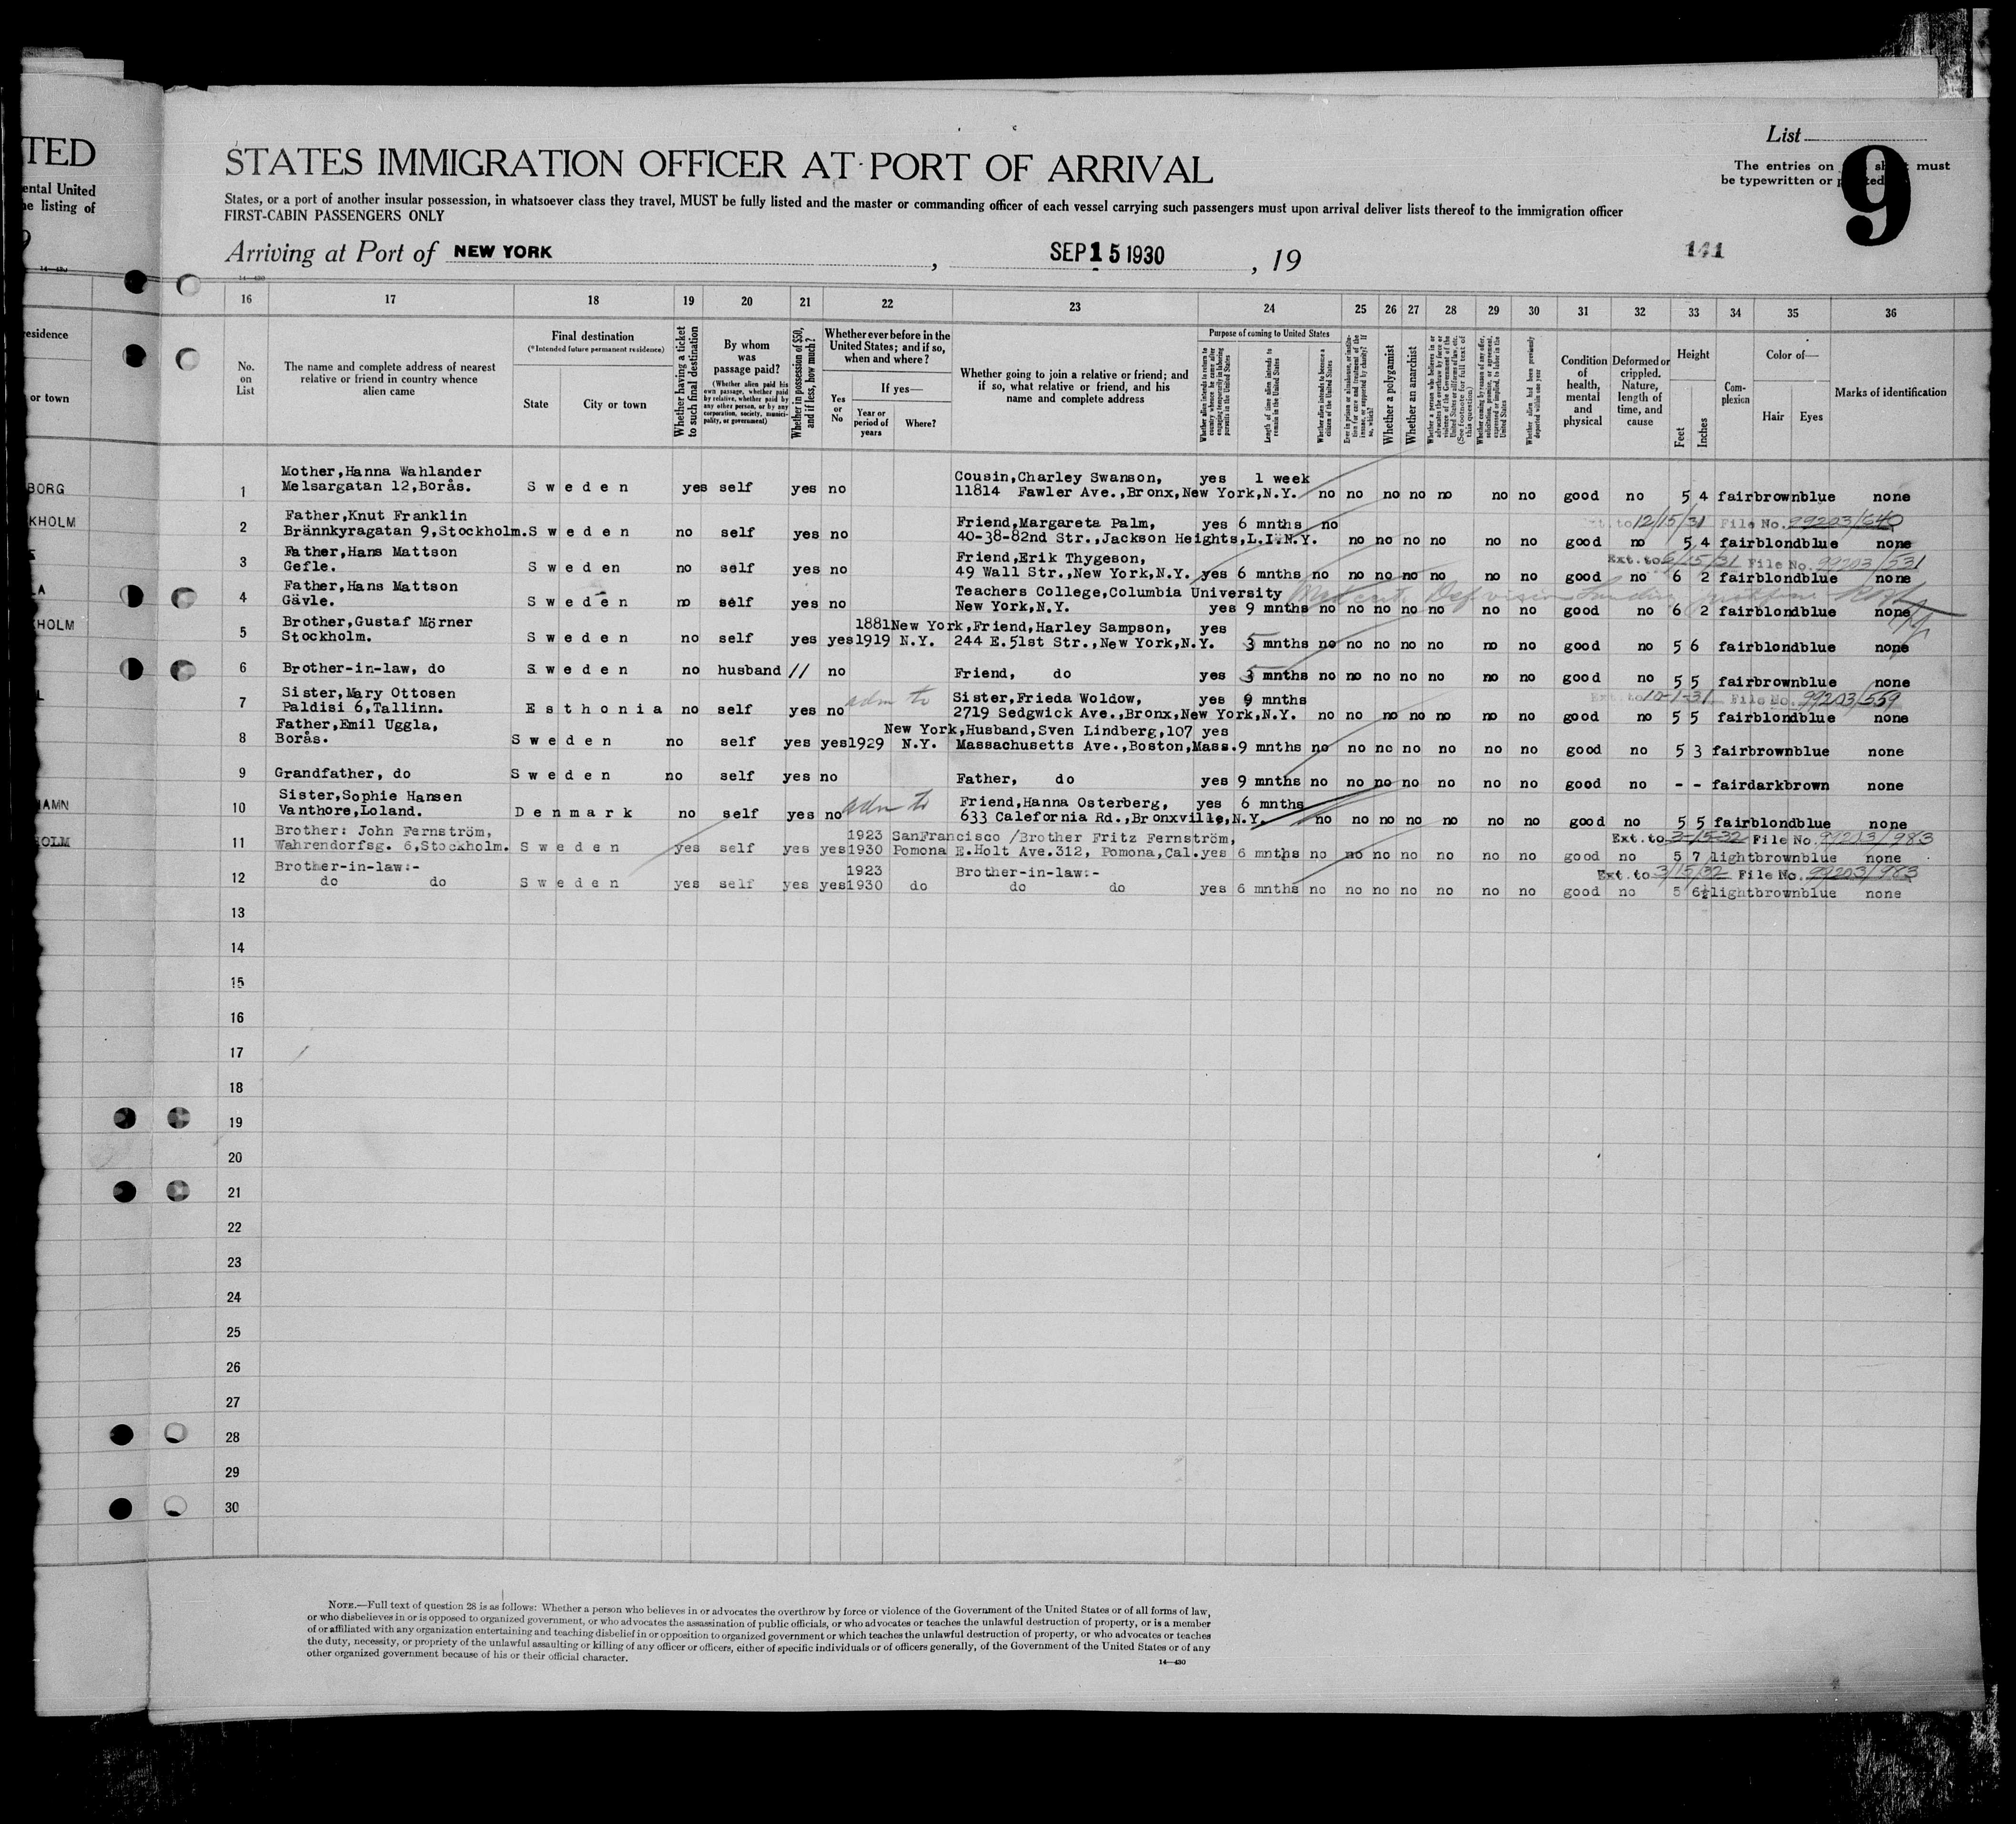 TED
ental United
e listing of
STATES IMMIGRATION OFFICER AT PORT OF ARRIVAL
States, or a port of another insular possession, in whatsoever class they travel, MUST be fully listed and the master or commanding officer of each vessel carrying such passengers must upon arrival deliver lists thereof to the immigration officer
FIRST-CABIN PASSENGERS ONLY
List
The entries on sheet must
be typewritten or printed
9
Arriving at Port of NEW YORK , SEP 15 1930 , 19
141
16 17 18 19 20 21 22 23 24 25 26 27 28 29 30 31 32 33 34 35 36
esidence
or town
No. on List
The name and complete address of nearest relative or friend in country whence alien came
Final destination
(*Intended future permanent residence)
State
City or town
Whether having a ticket to such final destination
By whom was passage paid?
(Whether alien paid his own passage, whether paid by relative, whether paid by any other person, or by any corporation, society, municipality, or government)
Whether in possession of $50, and if less, how much?
Whether ever before in the United States; and if so, when and where?
Yes or No
If yes—
Year or period of years
Where?
Whether going to join a relative or friend; and if so, what relative or friend, and his name and complete address
Purpose of coming to United States
Length of time alien intends to remain in the United States
Whether alien intends to become a citizen of the United States
Whether a polygamist
Whether an anarchist
Whether alien had been previously deported within one year
Condition of health, mental and physical
Deformed or crippled. Nature, length of time, and cause
Height
Feet
Inches
Complexion
Color of—
Hair
Eyes
Marks of identification
BORG
Mother,Hanna Wahlander Cousin,Charley Swanson, yes 1 week
1 Melsargatan 12,Borås. Sweden yes self yes no 11814 Fawler Ave.,Bronx,New York,N.Y. no no no no no no no good no 5 4 fair brown blue none
KHOLM
Father,Knut Franklin Friend,Margareta Palm, yes 6 mnths no Ext. to 12/15/31 File No. 99203/640
2 Brännkyragatan 9,Stockholm. Sweden no self yes no 40-38-82nd Str.,Jackson Heights,L.I.N.Y. no no no no no no good no 5 4 fair blond blue none
Father,Hans Mattson Friend,Erik Thygeson, Ext. to 6/15/31 File No. 99203/531
3 Gefle. Sweden no self yes no 49 Wall Str.,New York,N.Y. yes 6 mnths no no no no no no no good no 6 2 fair blond blue none
LA
Father,Hans Mattson Teachers College,Columbia University
4 Gävle. Sweden no self yes no New York,N.Y. yes 9 mnths no no no no no no no good no 6 2 fair blond blue none
HOLM
Brother,Gustaf Mörner 1881 New York,Friend,Harley Sampson, yes
5 Stockholm. Sweden no self yes yes 1919 N.Y. 244 E.51st Str.,New York,N.Y. 3 mnths no no no no no no no good no 5 6 fair blond blue none
6 Brother-in-law, do Sweden no husband // no Friend, do yes 3 mnths no no no no no no no good no 5 5 fair brown blue none
L
Sister,Mary Ottosen adm to Sister,Frieda Woldow, yes 9 mnths Ext. to 10-1-31 File No. 99203/559
7 Paldisi 6,Tallinn. Esthonia no self yes no 2719 Sedgwick Ave.,Bronx,New York,N.Y. no no no no no no no good no 5 5 fair blond blue none
Father,Emil Uggla, New York,Husband,Sven Lindberg,107 yes
8 Borås. Sweden no self yes yes 1929 N.Y. Massachusetts Ave.,Boston,Mass. 9 mnths no no no no no no no good no 5 3 fair brown blue none
9 Grandfather, do Sweden no self yes no Father, do yes 9 mnths no no no no no no no good no - - fair dark brown none
HAMN
Sister,Sophie Hansen adm to Friend,Hanna Osterberg, yes 6 mnths
10 Vanthore,Loland. Denmark no self yes no 633 Calefornia Rd.,Bronxville,N.Y. no no no no no no no good no 5 5 fair blond blue none
HOLM
Brother: John Fernström, 1923 SanFrancisco /Brother Fritz Fernström, Ext. to 3-15-32 File No. 99203/983
11 Wahrendorfsg. 6,Stockholm. Sweden yes self yes yes 1930 Pomona E.Holt Ave.312, Pomona,Cal. yes 6 mnths no no no no no no no good no 5 7 light brown blue none
Brother-in-law:- 1923 Brother-in-law:- Ext. to 3/15/32 File No. 99203/983
12 do do Sweden yes self yes yes 1930 do do do yes 6 mnths no no no no no no no good no 5 6½ light brown blue none
13
14
15
16
17
18
19
20
21
22
23
24
25
26
27
28
29
30
NOTE.—Full text of question 28 is as follows: Whether a person who believes in or advocates the overthrow by force or violence of the Government of the United States or of all forms of law,
or who disbelieves in or is opposed to organized government, or who advocates the assassination of public officials, or who advocates or teaches the unlawful destruction of property, or is a member
of or affiliated with any organization entertaining and teaching disbelief in or opposition to organized government or which teaches the unlawful destruction of property, or who advocates or teaches
the duty, necessity, or propriety of the unlawful assaulting or killing of any officer or officers, either of specific individuals or of officers generally, of the Government of the United States or of any
other organized government because of his or their official character.
14—430